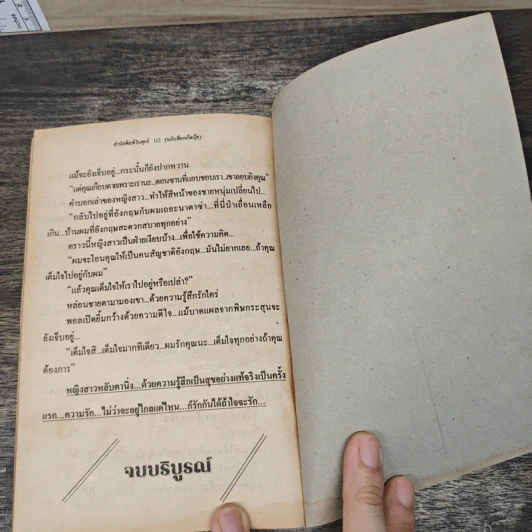 สำนักพิมพ์วันศุกร์ 112 (ฉบับพ็อกเก็ตบุ๊ค)
แม้จะยังเจ็บอยู่...กระนั้นก็ยังปากหวาน
"แต่คุณเกือบตายเพราะเรานะ..ตอนซานที่แอบชอบเรา...เขาลอบยิงคุณ"
คำบอกเล่าของหญิงสาว...ทำให้สีหน้าของชายหนุ่มเปลี่ยนไป...
"กลับไปอยู่ที่อังกฤษกับผมเถอะนาตาซ่า...ที่นี่ป่าเถื่อนเหลือ
เกิน...บ้านผมที่อังกฤษสะดวกสบายทุกอย่าง"
คราวนี้หญิงสาวเป็นฝ่ายเงียบบ้าง...เพื่อใช้ความคิด...
"ผมจะโอนคุณให้เป็นคนสัญชาติอังกฤษ...มันไม่ยากเลย...ถ้าคุณ
เต็มใจไปอยู่กับผม"
"แล้วคุณเต็มใจให้เราไปอยู่หรือเปล่า?"
หล่อนชายตามามองเขา...ด้วยความรู้สึกรักใคร่
พอลเปิดยิ้มกว้างด้วยความดีใจ...แม้บาดแผลจากพิษกระสุนจะ
ยังเจ็บอยู่...
"เต็มใจสิ...เต็มใจมากทีเดียว...ผมรักคุณนะ...เต็มใจทุกอย่างถ้าคุณ
ต้องการ"
หญิงสาวหลับตานิ่ง...ด้วยความรู้สึกเป็นสุขอย่างแท้จริงเป็นครั้ง
แรก...ความรัก...ไม่ว่าจะอยู่ไกลแค่ไหน...ก็รักกันได้ถ้าใจจะรัก...
จบบริบูรณ์